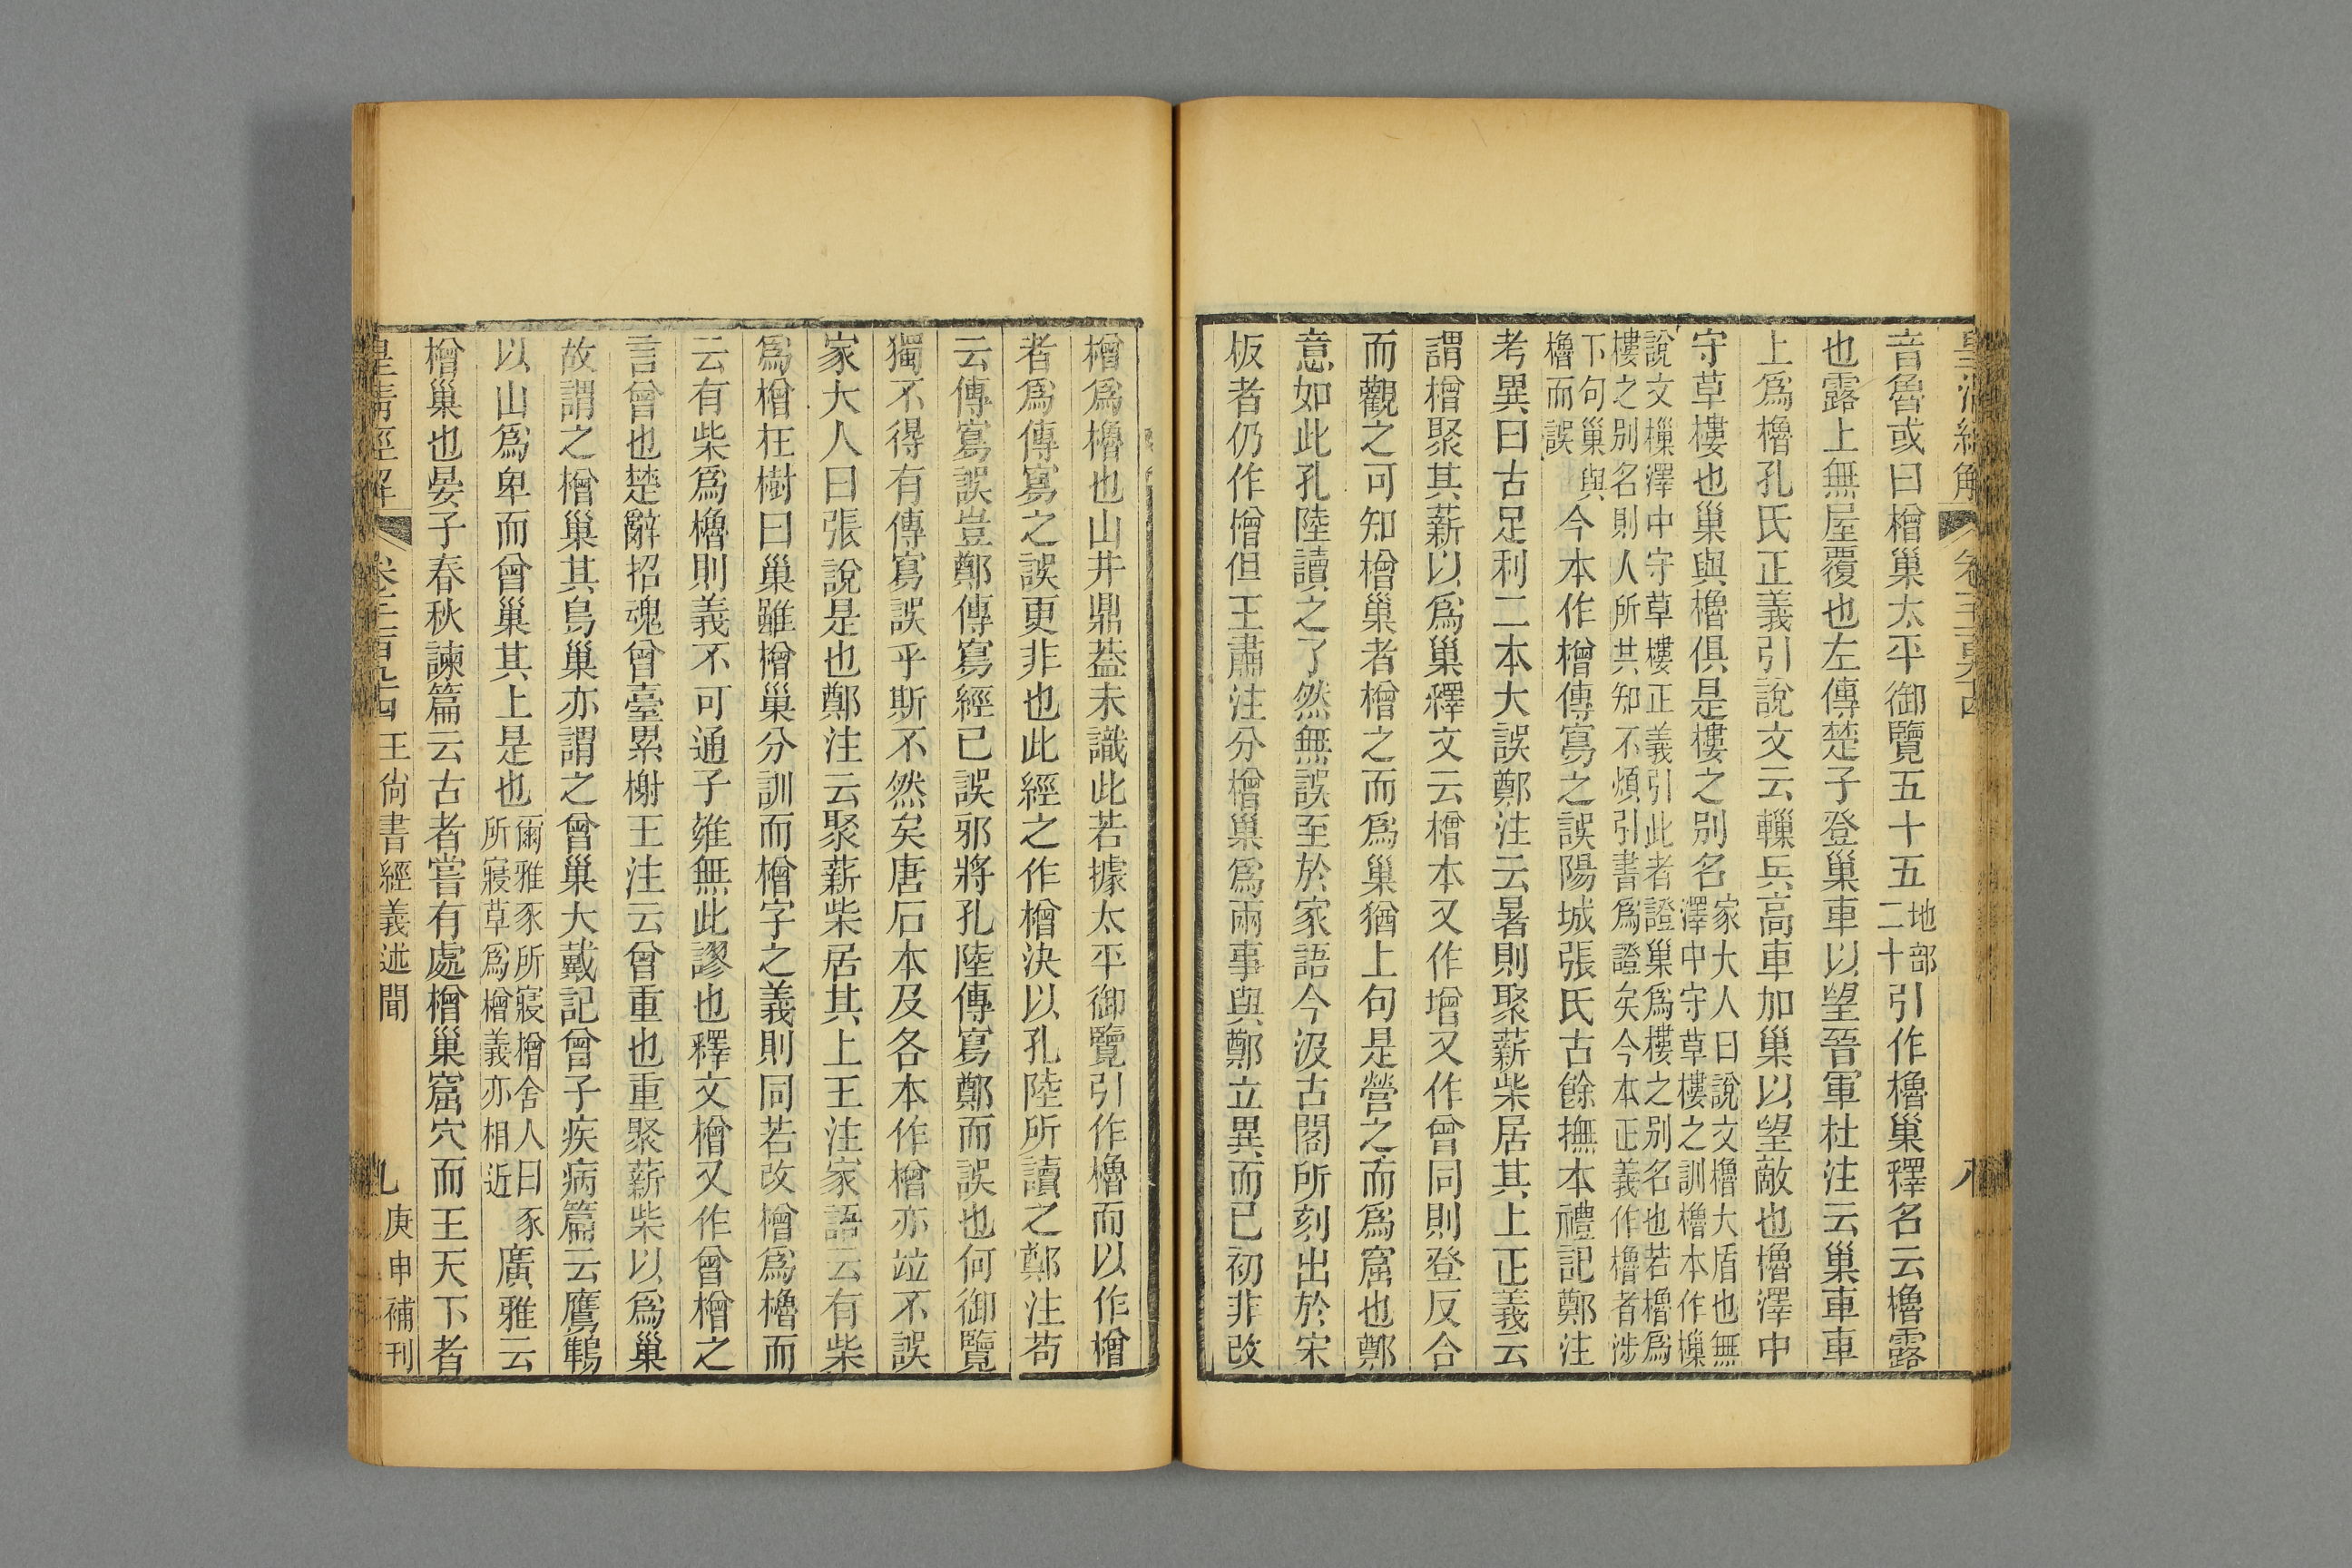 音魯或曰橧巢太平御覽五十五地部二十引作櫓巢釋名云櫓露
也露上無屋覆也左傳楚子登巢車以望晉軍杜注云巢車車
上爲櫓孔氏正義引說文云轈兵高車加巢以望敵也櫓澤中
守草樓也巢與櫓俱是樓之別名家大人曰說文櫓大盾也無澤中守草樓之訓櫓本作樔
說文樔澤中守草樓正義引此者證巢爲樓之別名也若櫓爲樓之別名則人所共知不煩引書爲證矣今本正義作櫓者涉
下句巢與櫓而誤今本作橧傳寫之誤陽城張氏古餘撫本禮記鄭注
考異曰古足利二本大誤鄭注云暑則聚薪柴居其上正義云
謂橧聚其薪以爲巢釋文云橧本又作增又作曾同則登反合
而觀之可知橧巢者橧之而爲巢猶上句是營之而爲窟也鄭
意如此孔陸讀之了然無誤至於家語今汲古閣所刻出於宋
板者仍作憎但王肅注分橧巢爲兩事與鄭立異而已初非改
橧爲櫓也山井鼎葢未識此若據太平御覽引作櫓而以作橧
者爲傳寫之誤更非也此經之作橧決以孔陸所讀之鄭注苟
云傳寫誤豈鄭傳寫經已誤邪將孔陸傳寫鄭而誤也何御覽
獨不得有傳寫誤乎斯不然矣唐石本及各本作橧亦竝不誤
家大人曰張說是也鄭注云聚薪柴居其上王注家語云有柴
爲橧在樹曰巢雖橧巢分訓而橧字之義則同若改橧爲櫓而
云有柴爲櫓則義不可通子雍無此謬也釋文橧又作曾橧之
言曾也楚辭招魂曾臺累榭王注云曾重也重聚薪柴以爲巢
故謂之橧巢其鳥巢亦謂之曾巢大戴記曾子疾病篇云鷹鶽
以山爲卑而曾巢其上是也爾雅豕所寢橧舍人曰豕所寢草爲橧義亦相近廣雅云
橧巢也晏子春秋諫篇云古者嘗有處橧巢窟穴而王天下者
皇清經解 卷三百九十四 王尙書經義述聞 九 庚申補刊